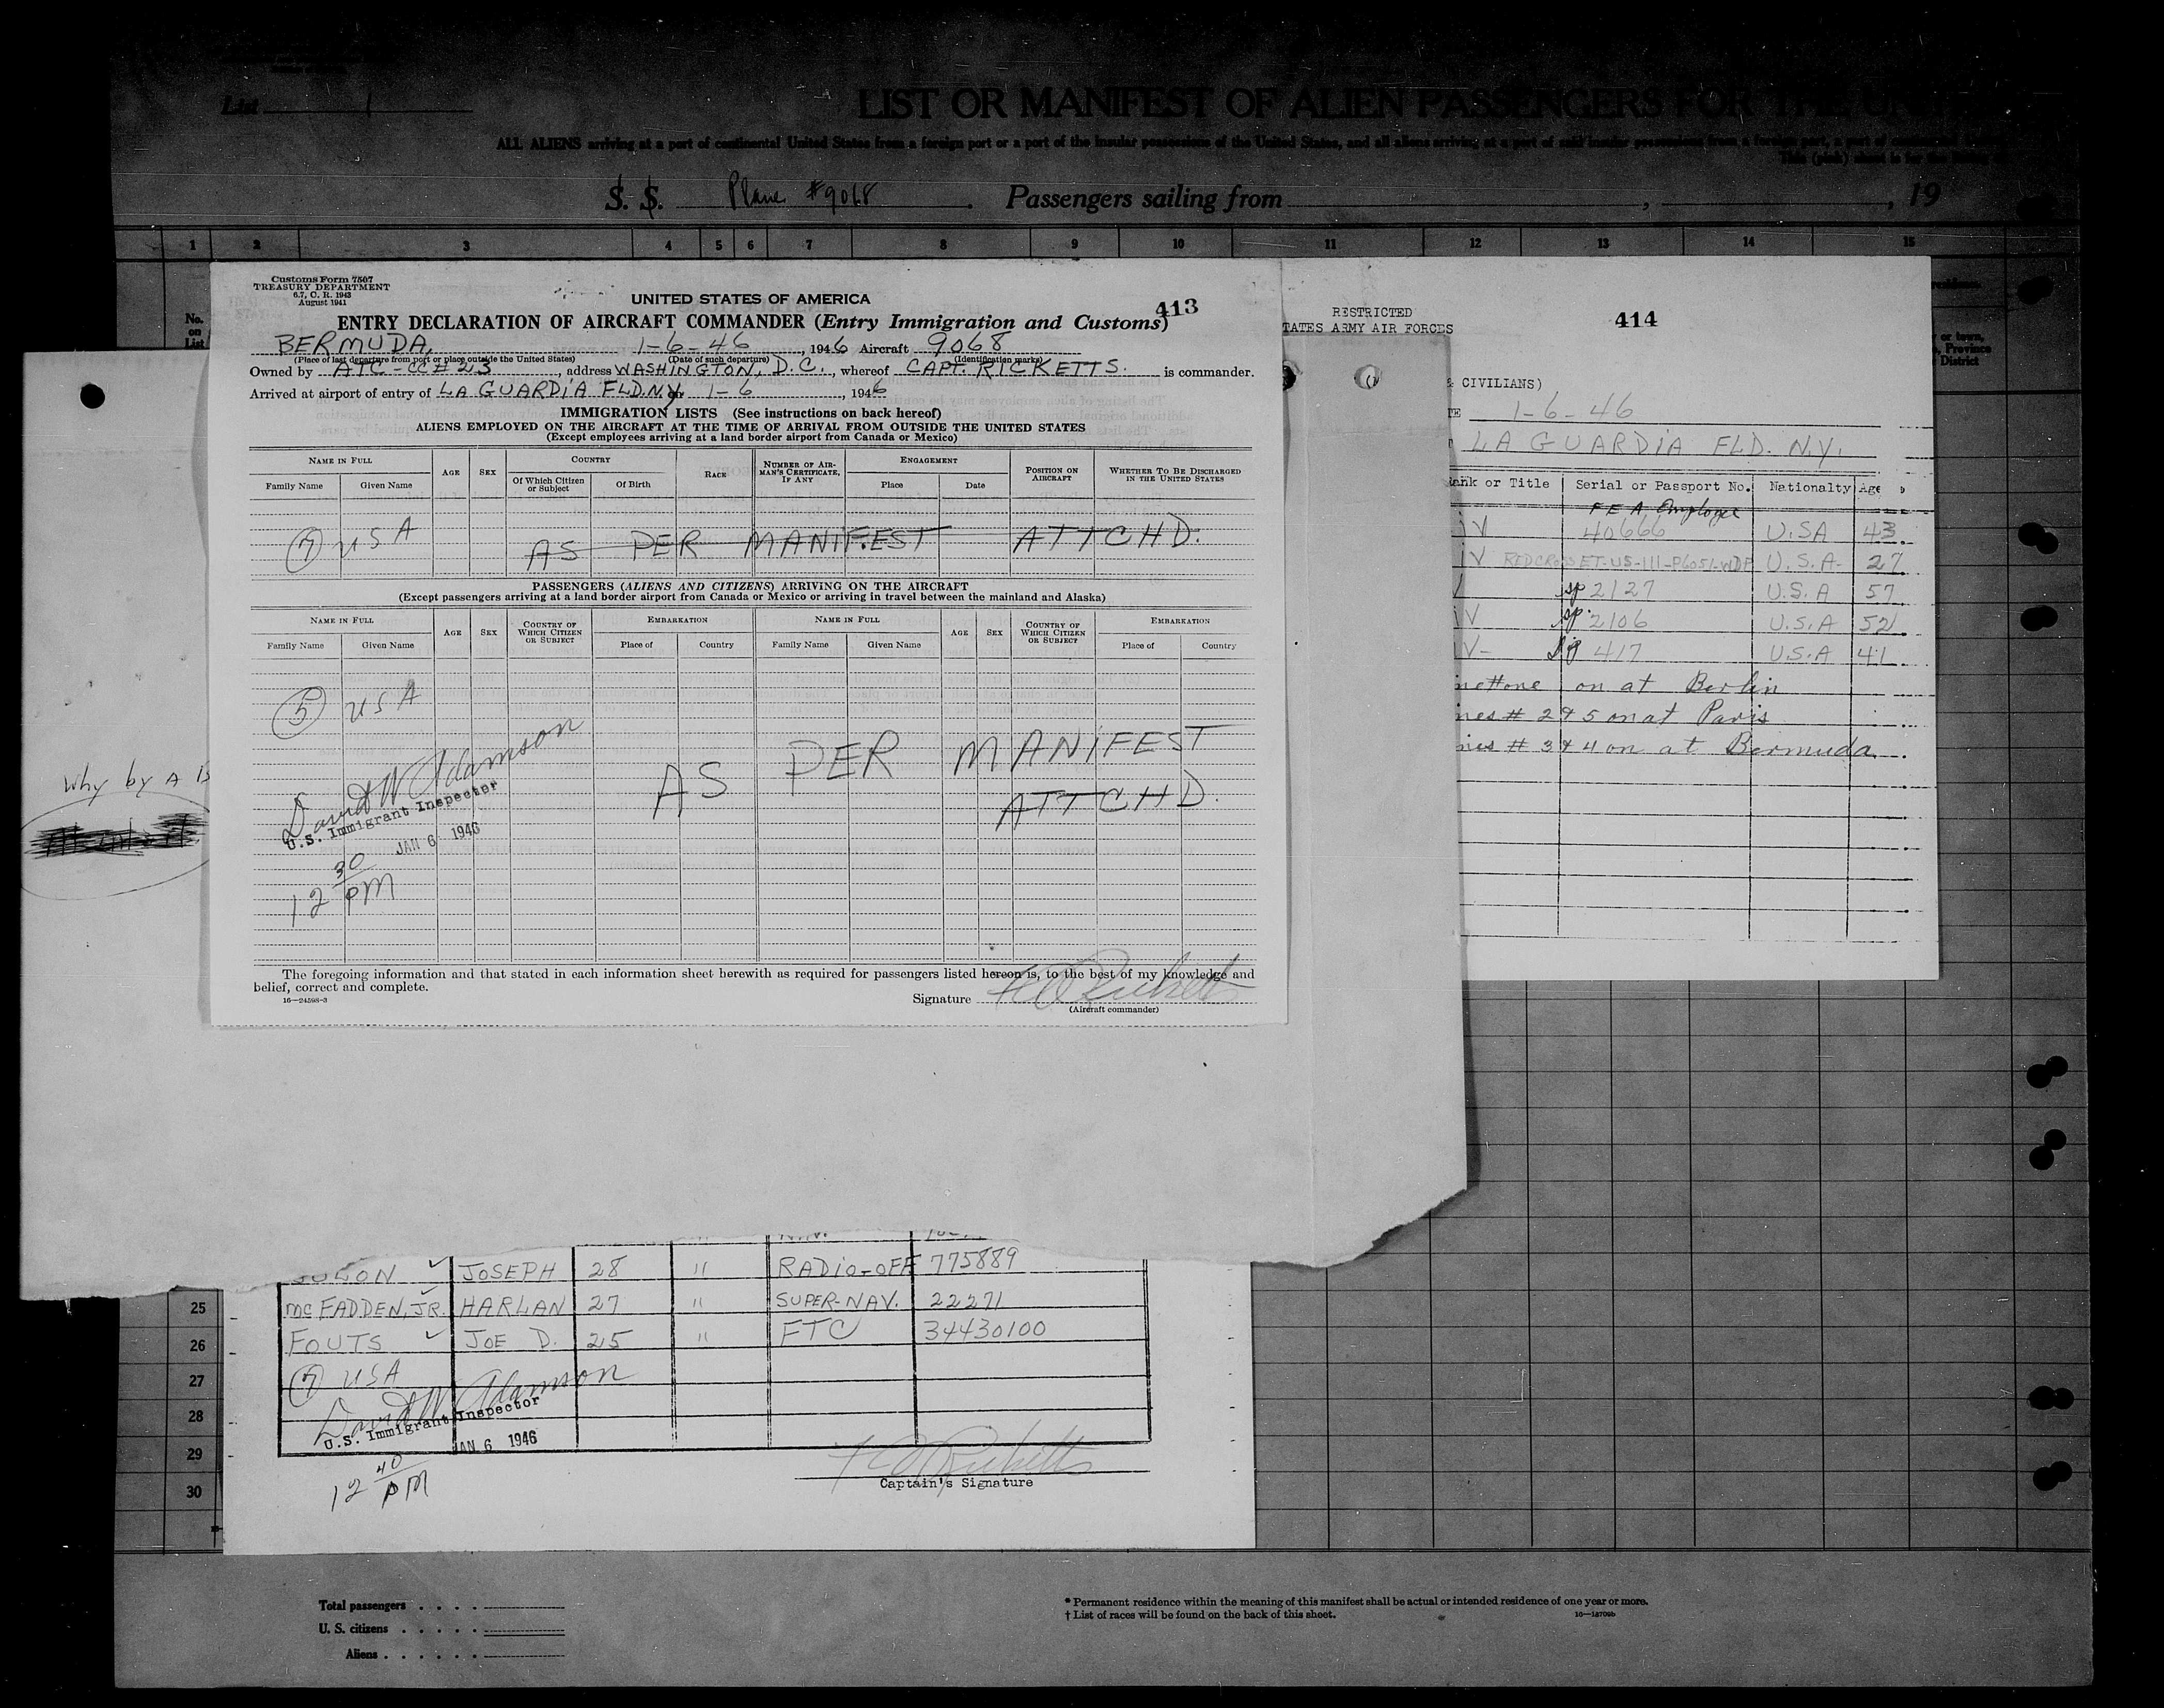 List 1
LIST OR MANIFEST OF ALIEN PASSENGERS FOR THE
ALL ALIENS arriving at a port of continental United States from a foreign port or a port of the insular possessions of the United States, and all aliens arriving at a port of said insular possessions from a foreign port, a port of
This (pink) sheet is for the
S. S. Plane #9068 . Passengers sailing from , , 19
1 2 3 4 5 6 7 8 9 10 11 12 13 14 15
No. on List
Customs Form 7507
TREASURY DEPARTMENT
6.7, C. R. 1943
August 1941
UNITED STATES OF AMERICA
413
ENTRY DECLARATION OF AIRCRAFT COMMANDER (Entry Immigration and Customs)
BERMUDA, 1-6-46, 1946 Aircraft 9068
(Place of last departure from port or place outside the United States) (Date of such departure) (Identification marks)
Owned by ATC-CC#23, address WASHINGTON, D.C., whereof CAPT. RICKETTS. is commander.
Arrived at airport of entry of LA GUARDIA FLD.N.Y. on 1-6, 1946
IMMIGRATION LISTS (See instructions on back hereof)
ALIENS EMPLOYED ON THE AIRCRAFT AT THE TIME OF ARRIVAL FROM OUTSIDE THE UNITED STATES
(Except employees arriving at a land border airport from Canada or Mexico)
NAME IN FULL AGE SEX COUNTRY RACE NUMBER OF AIRMAN'S CERTIFICATE, IF ANY ENGAGEMENT POSITION ON AIRCRAFT WHETHER TO BE DISCHARGED IN THE UNITED STATES
Family Name Given Name Of Which Citizen or Subject Of Birth Place Date
7 USA AS PER MANIFEST ATTCHD.
PASSENGERS (ALIENS AND CITIZENS) ARRIVING ON THE AIRCRAFT
(Except passengers arriving at a land border airport from Canada or Mexico or arriving in travel between the mainland and Alaska)
NAME IN FULL AGE SEX COUNTRY OF WHICH CITIZEN OR SUBJECT EMBARKATION NAME IN FULL AGE SEX COUNTRY OF WHICH CITIZEN OR SUBJECT EMBARKATION
Family Name Given Name Place of Country Family Name Given Name Place of Country
5 USA
AS PER MANIFEST
ATTCHD.
David W Adamson
U.S. Immigrant Inspector
JAN 6 1946
12 30 PM
The foregoing information and that stated in each information sheet herewith as required for passengers listed hereon is, to the best of my knowledge and
belief, correct and complete.
16—24598-3
Signature
(Aircraft commander)
Why by A
RESTRICTED
414
TATES ARMY AIR FORCES
& CIVILIANS)
TE 1-6-46
LA GUARDIA FLD. N.Y.
Rank or Title Serial or Passport No. Nationalty Age
FEA Employee
IV 40666 U.SA 43.
IV REDCROSS ET-US-111-P6051-WDP U.S.A- 27
sp 2127 U.S.A 57
IV sp 2106 U.S.A 52
IV- 417 U.S.A 41
one on at Berlin
nes # 2 & 5 on at Paris
nes # 3 & 4 on at Bermuda.
JOSEPH 28 " RADIO-OFF 775889
MCFADDEN, JR. HARLAN 27 " SUPER-NAV. 22271
FOUTS JOE D. 25 " FTC 34430100
7 USA
David W Adamson
U.S. Immigrant Inspector
JAN 6 1946
12 40 PM
Captain's Signature
25
26
27
28
29
30
Total passengers
U. S. citizens
Aliens
* Permanent residence within the meaning of this manifest shall be actual or intended residence of one year or more.
† List of races will be found on the back of this sheet.